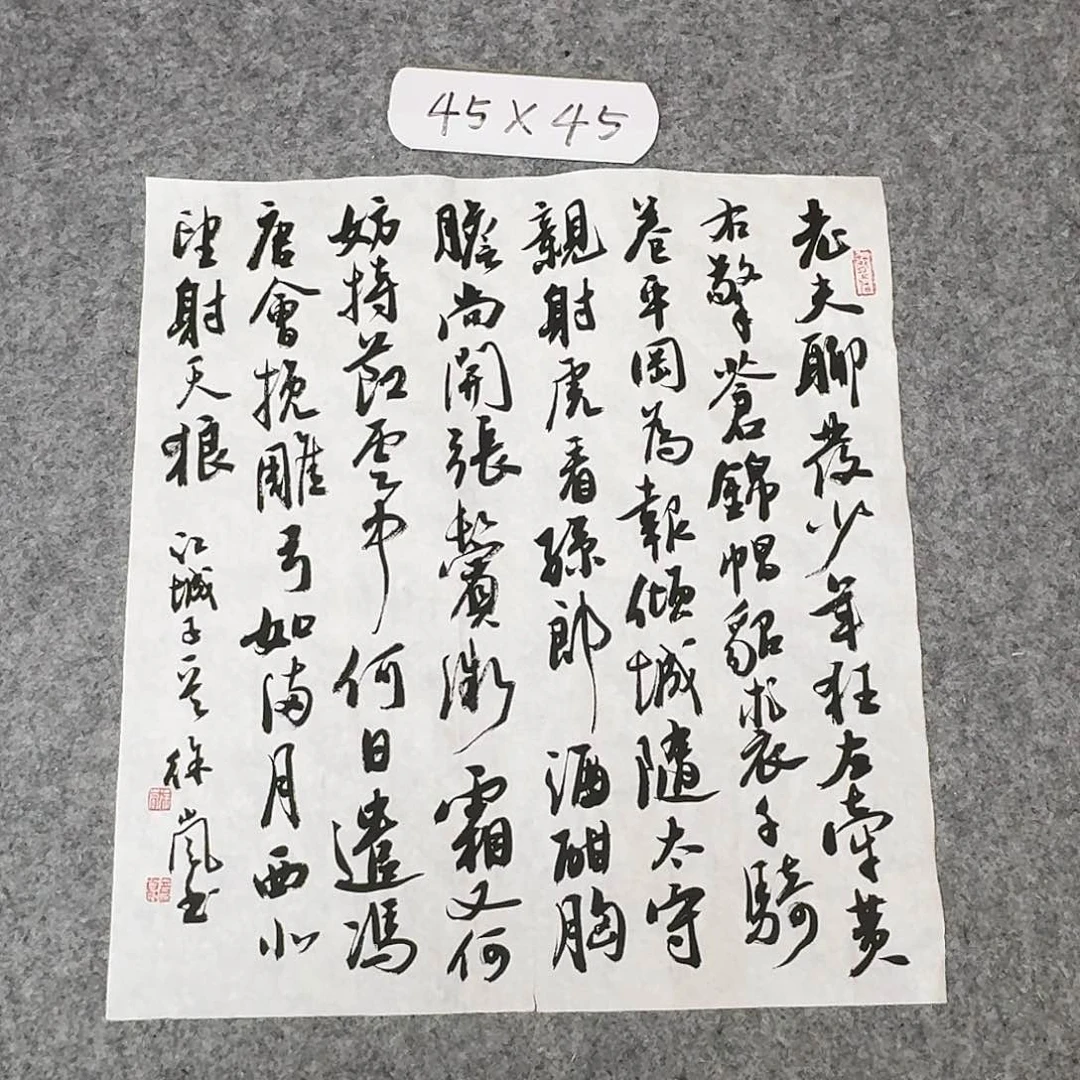 45×45
老夫聊發少年狂左牽黃
右擎蒼錦帽貂裘千騎
卷平岡為報傾城隨太守
親射虎看孫郎酒酣胸
膽尚開張鬢微霜又何
妨持節雲中何日遣馮
唐會挽雕弓如滿月西北
望射天狼 江城子一首 徐嵐书